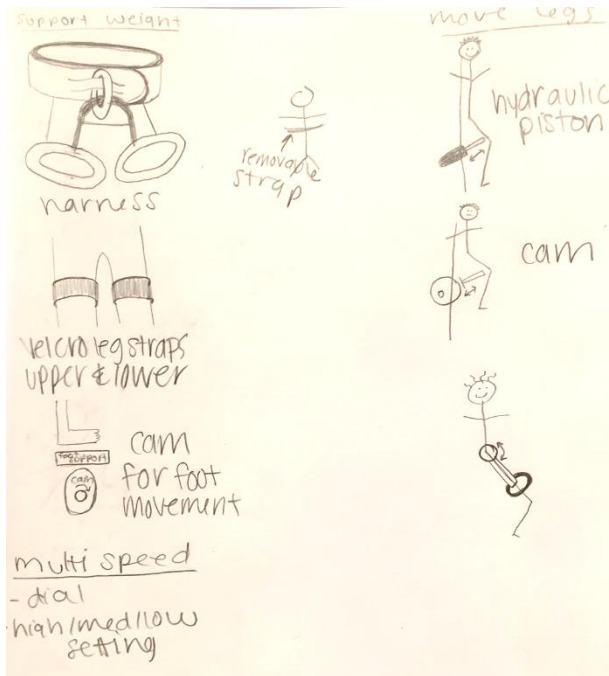 support weight
harness
removable
strap
velcro leg straps
upper & lower
foot
support
cam
cam
for foot
movement
multi speed
- dial
- high/med/low
setting
move legs
hydraulic
piston
cam